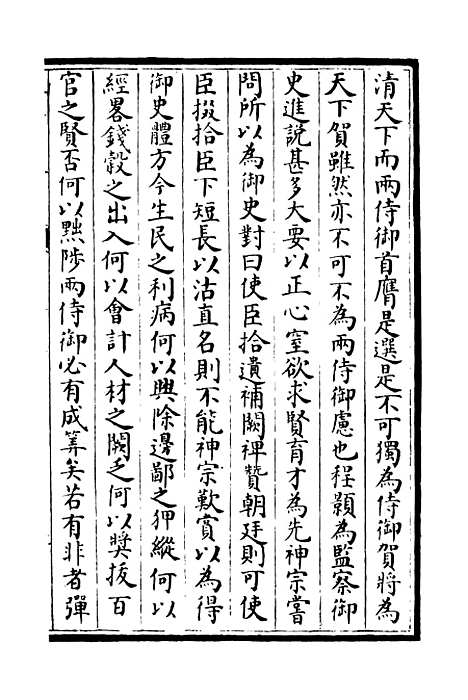 清天下而兩侍御首膺是選是不可獨為侍御賀將為
天下賀雖然亦不可不為兩侍御慮也程顥為監察御
史進說甚多大要以正心窒欲求賢育才為先神宗嘗
問所以為御史對曰使臣拾遺補闕裨贊朝廷則可使
臣掇拾臣下短長以沽直名則不能神宗歎賞以為得
御史體方今生民之利病何以興除邊鄙之狎縱何以
經畧錢穀之出入何以會計人材之闕乏何以奨拔百
官之賢否何以黜陟兩侍御必有成筭矣若有非者彈